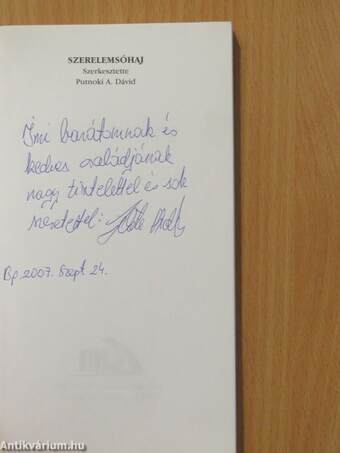 SZERELEMSÓHAJ
Szerkesztette
Putnoki A. Dávid
Imi barátomnak és
kedves családjának
nagy tisztelettel és sok
szeretettel:
Bp. 2007. Szept. 24.
Antikvárium.hu